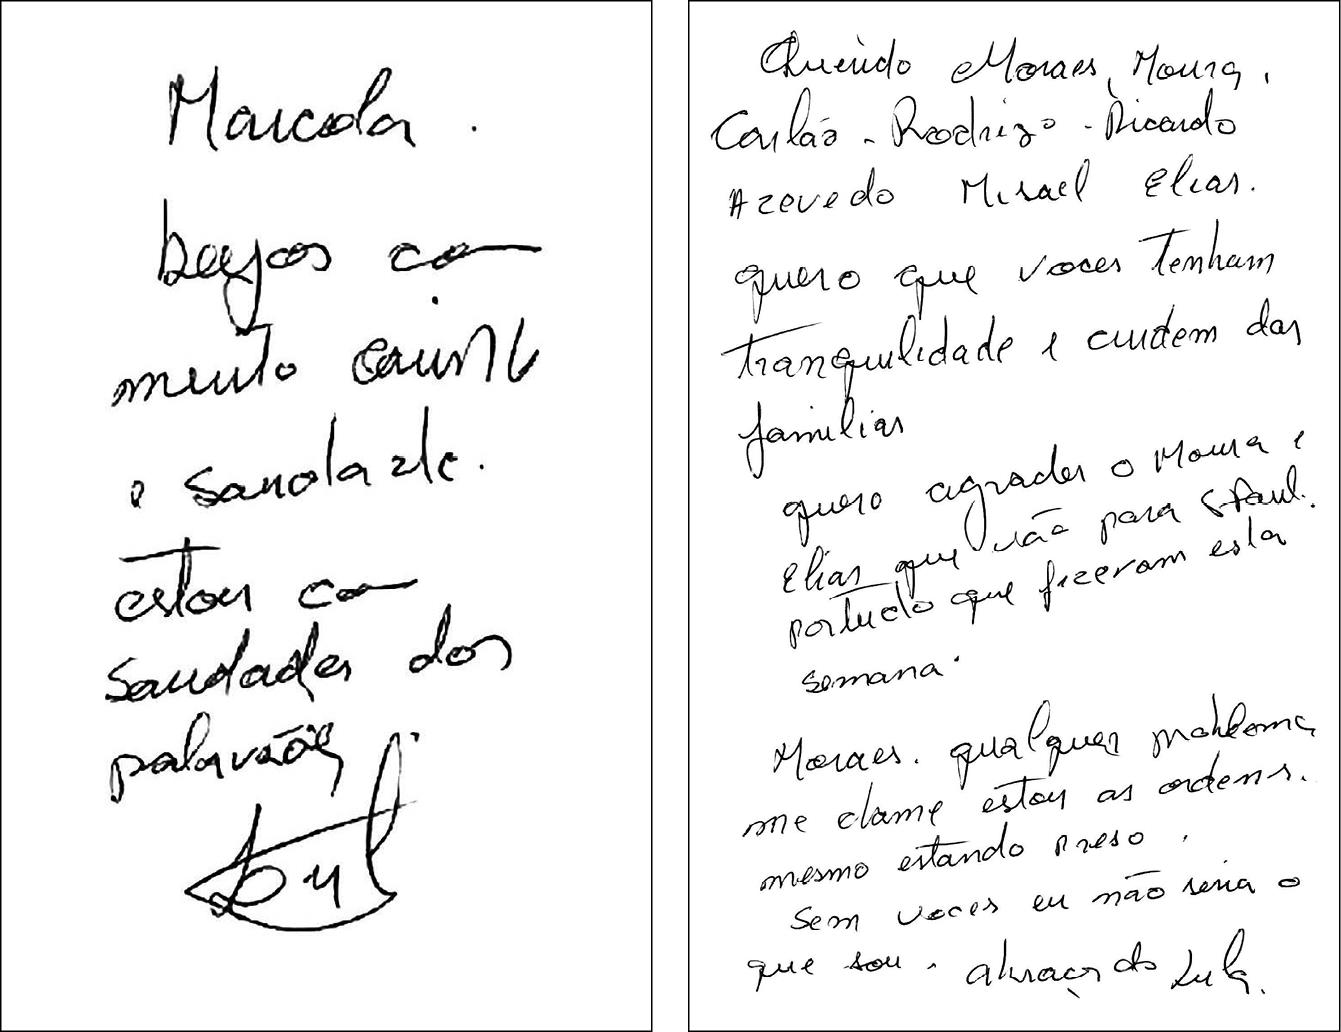 Marcola.
beijos com
muito carinho
e saudade.
estou com
saudades dos
palavrões
Lula
Querido Moraes, Moura,
Carlão - Rodrigo - Ricardo
Azevedo Misael Elias.
quero que voces tenham
tranquilidade e cuidem das
familias
quero agradecer o Moura e
Elias que vão para
por tudo que fizeram esta
semana.
Moraes. qualquer problema
me chame estou as ordens.
mesmo estando preso.
Sem voces eu não seria o
que sou. abraços do Lula.